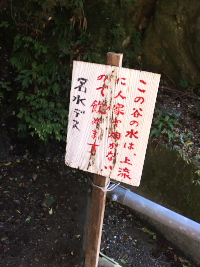 この谷の水は、上流
に人家が畑がない
ので飲めます
名水デス